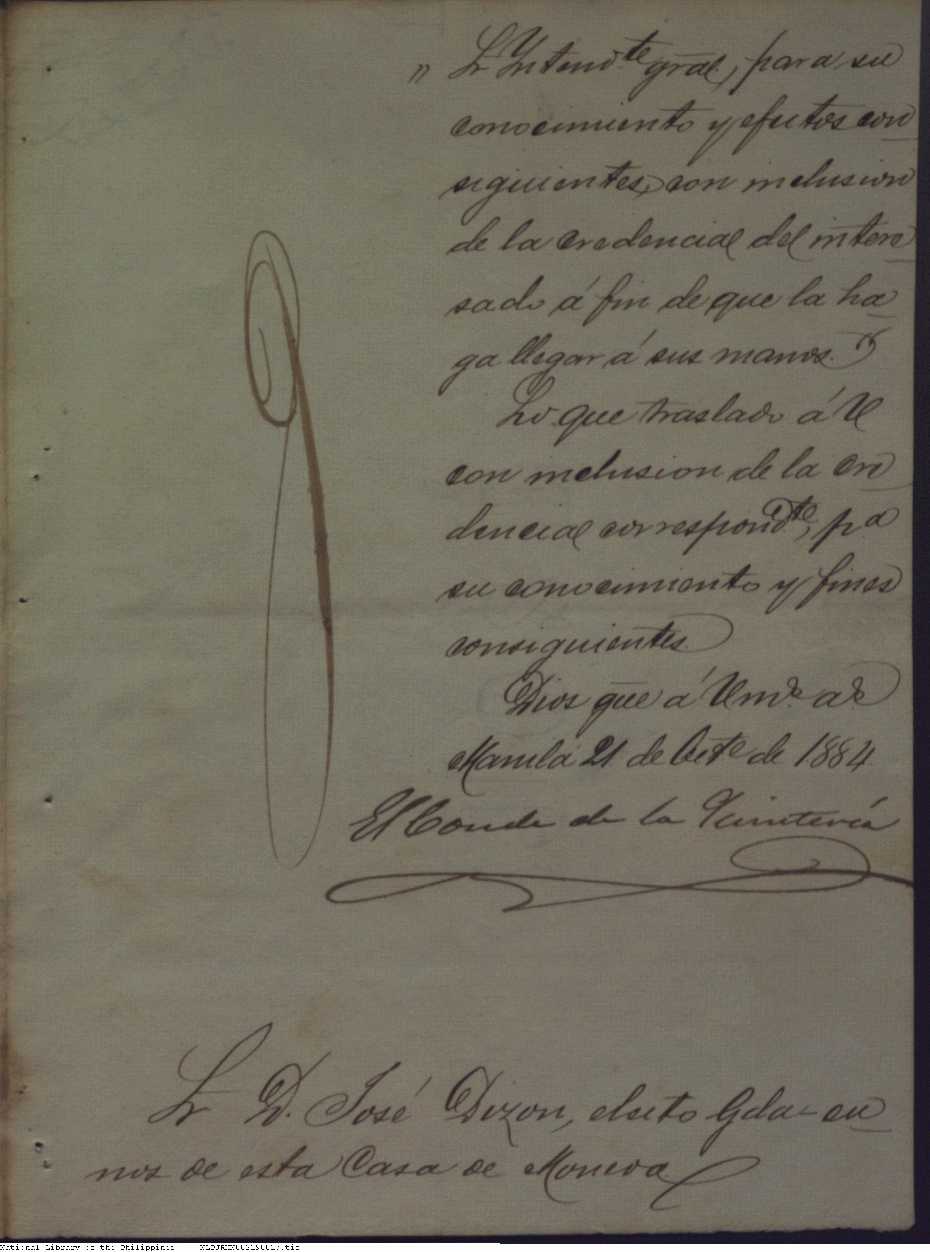 " Sr Yntend.te gral, para su
conocimiento y efectos con
siguientes, con inclusion
de la credencial del intere
sado á fin de que la ha
ga llegar á sus manos."
Lo que traslado á U
con inclusion de la cre
dencial correspond.te, pa
su conocimiento y fines
consiguientes.
Dios gue á U ms. as
Manila 21 de Octe de 1884
El Conde de la
Sr D. José Dizon, electo Gda- cu
nos de esta Casa de Moneda
National Library of the Philippines